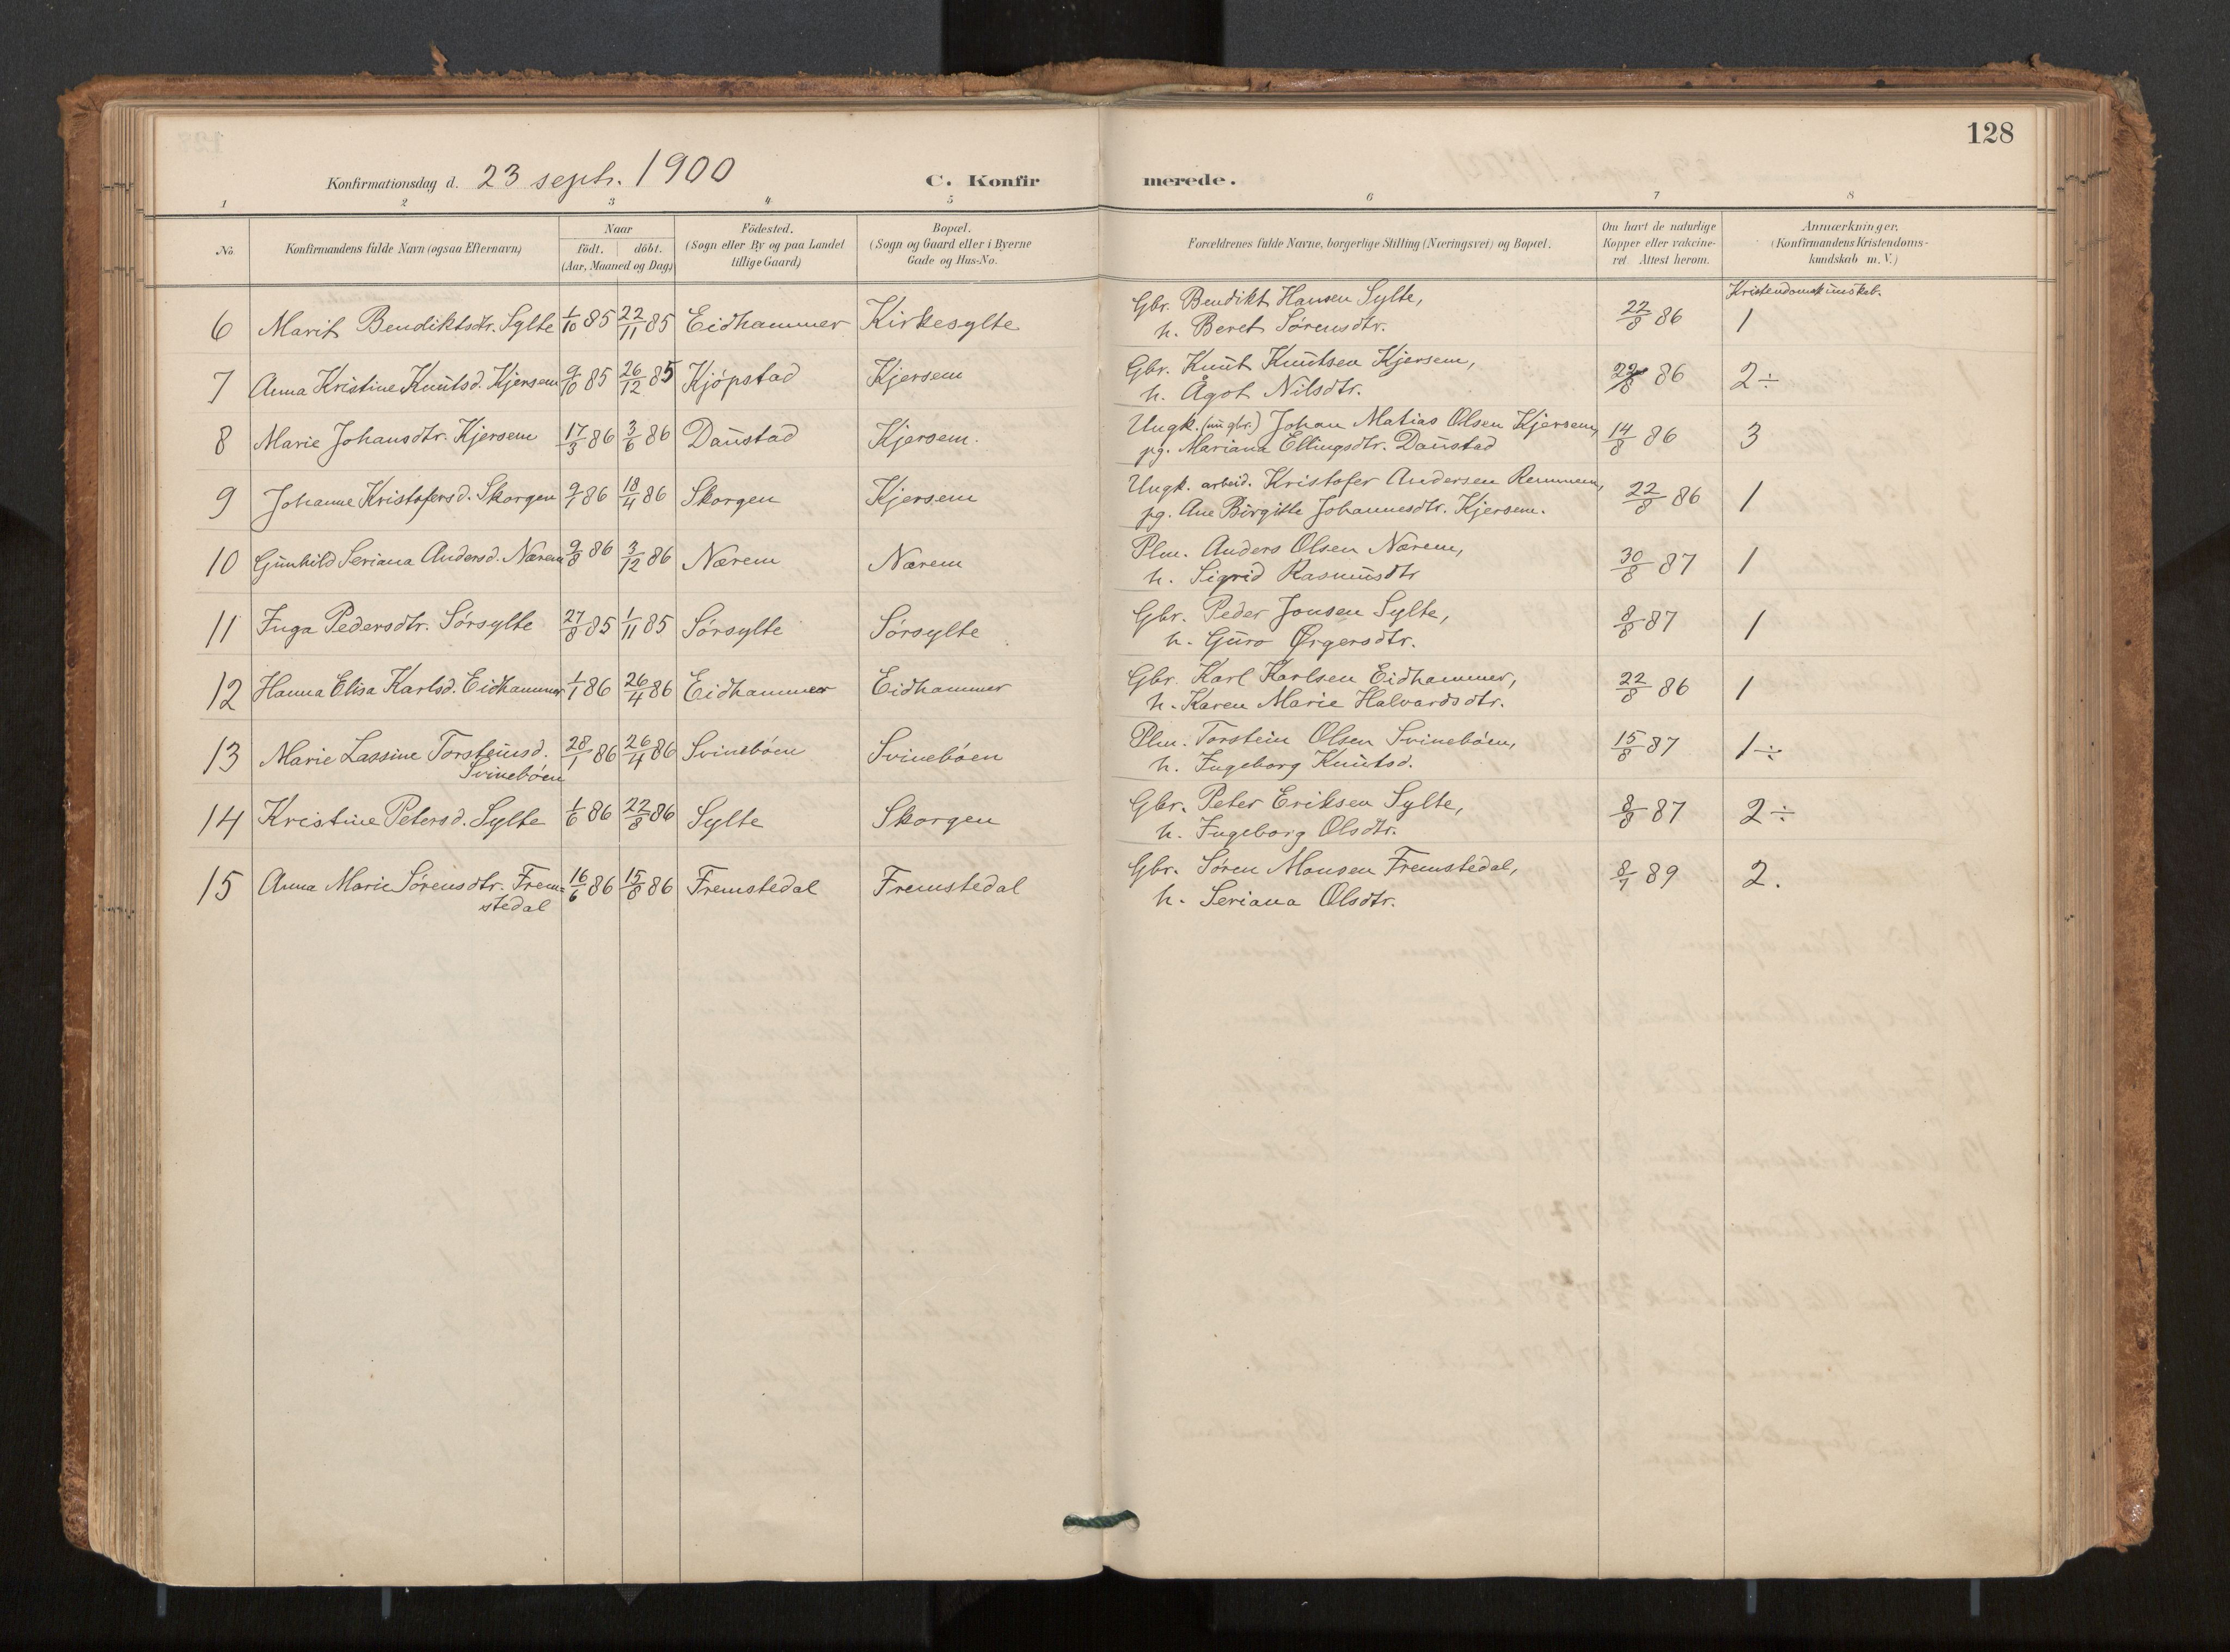 128
Konfirmationsdag d. 23 septr. 1900
C. Konfirmerede.
1 2 3 4 5 6 7 8
No. | Konfirmandens fulde Navn (ogsaa Efternavn) | Naar födt. | döbt. (Aar, Maaned og Dag) | Födested. (Sogn eller By og paa Landet tillige Gaard) | Bopæl. (Sogn og Gaard eller i Byerne Gade og Hus-No. | Forældrenes fulde Navne, borgerlige Stilling (Næringsvei) og Bopæl. | Om havt de naturlige Kopper eller vakcineret Attest herom. | Anmærkninger. (Konfirmandens Kristendomskundskab m. V.)
Kristendomskunskab.
6 Marit Bendiktsdtr. Sylte 1/10 85 22/11 85 Eidhammer Kirkesylte Gbr. Bendikt Hansen Sylte, 22/8 86 1
h. Beret Sørensdtr.
7 Anna Kristine Knutsd. Kjersem 9/10 85 26/12 85 Kjöpstad Kjersem Gbr. Knut Knutsen Kjersem, 22/8 86 2÷
h. Ågot Nilsdtr.
8 Marie Johansdtr. Kjersem 17/3 86 3/6 86 Daustad Kjersem. Ungk. (nu gbr.) Johan Matias Olsen Kjersem, 14/8 86 3
pg. Mariana Ellingsdtr. Daustad
9 Johanne Kristofersd. Skorgen 9/1 86 18/4 86 Skorgen Kjersem Ungk. arbeid. Kristofer Andersen Remmem, 22/8 86 1
pg. Ane Birgitte Johannesdtr. Kjersem.
10 Gunhild Seriana Andersd. Nærem 9/8 86 3/12 86 Nærem Nærem Plm. Anders Olsen Nærem, 30/8 87 1
h. Sigrid Rasmusdtr
11 Inga Pedersdtr. Sörsylte 27/8 85 1/11 85 Sörsylte Sörsylte Gbr. Peder Jonsen Sylte, 8/8 87 1
h. Guro Ørgersdtr.
12 Hanna Elisa Karlsd. Eidhammer 1/1 86 26/4 86 Eidhammer Eidhammer Gbr. Karl Karlsen Eidhammer, 22/8 86 1
h. Karen Marie Halvardsdtr.
13 Marie Lassine Torsteinsd. 28/1 86 26/4 86 Svineböen Svineböen Plm. Torstein Olsen Svineböen, 15/8 87 1÷
Svineböen h. Ingeborg Knutsd.
14 Kristine Petersd. Sylte 1/6 86 22/8 86 Sylte Skorgen Gbr. Peter Eriksen Sylte, 8/8 87 2÷
h. Ingeborg Olsdtr.
15 Anna Marie Sörensdtr. Frem= 16/6 86 15/8 86 Fremstedal Fremstedal Gbr. Sören Monsen Fremstedal, 8/7 89 2.
stedal h. Seriana Olsdtr.